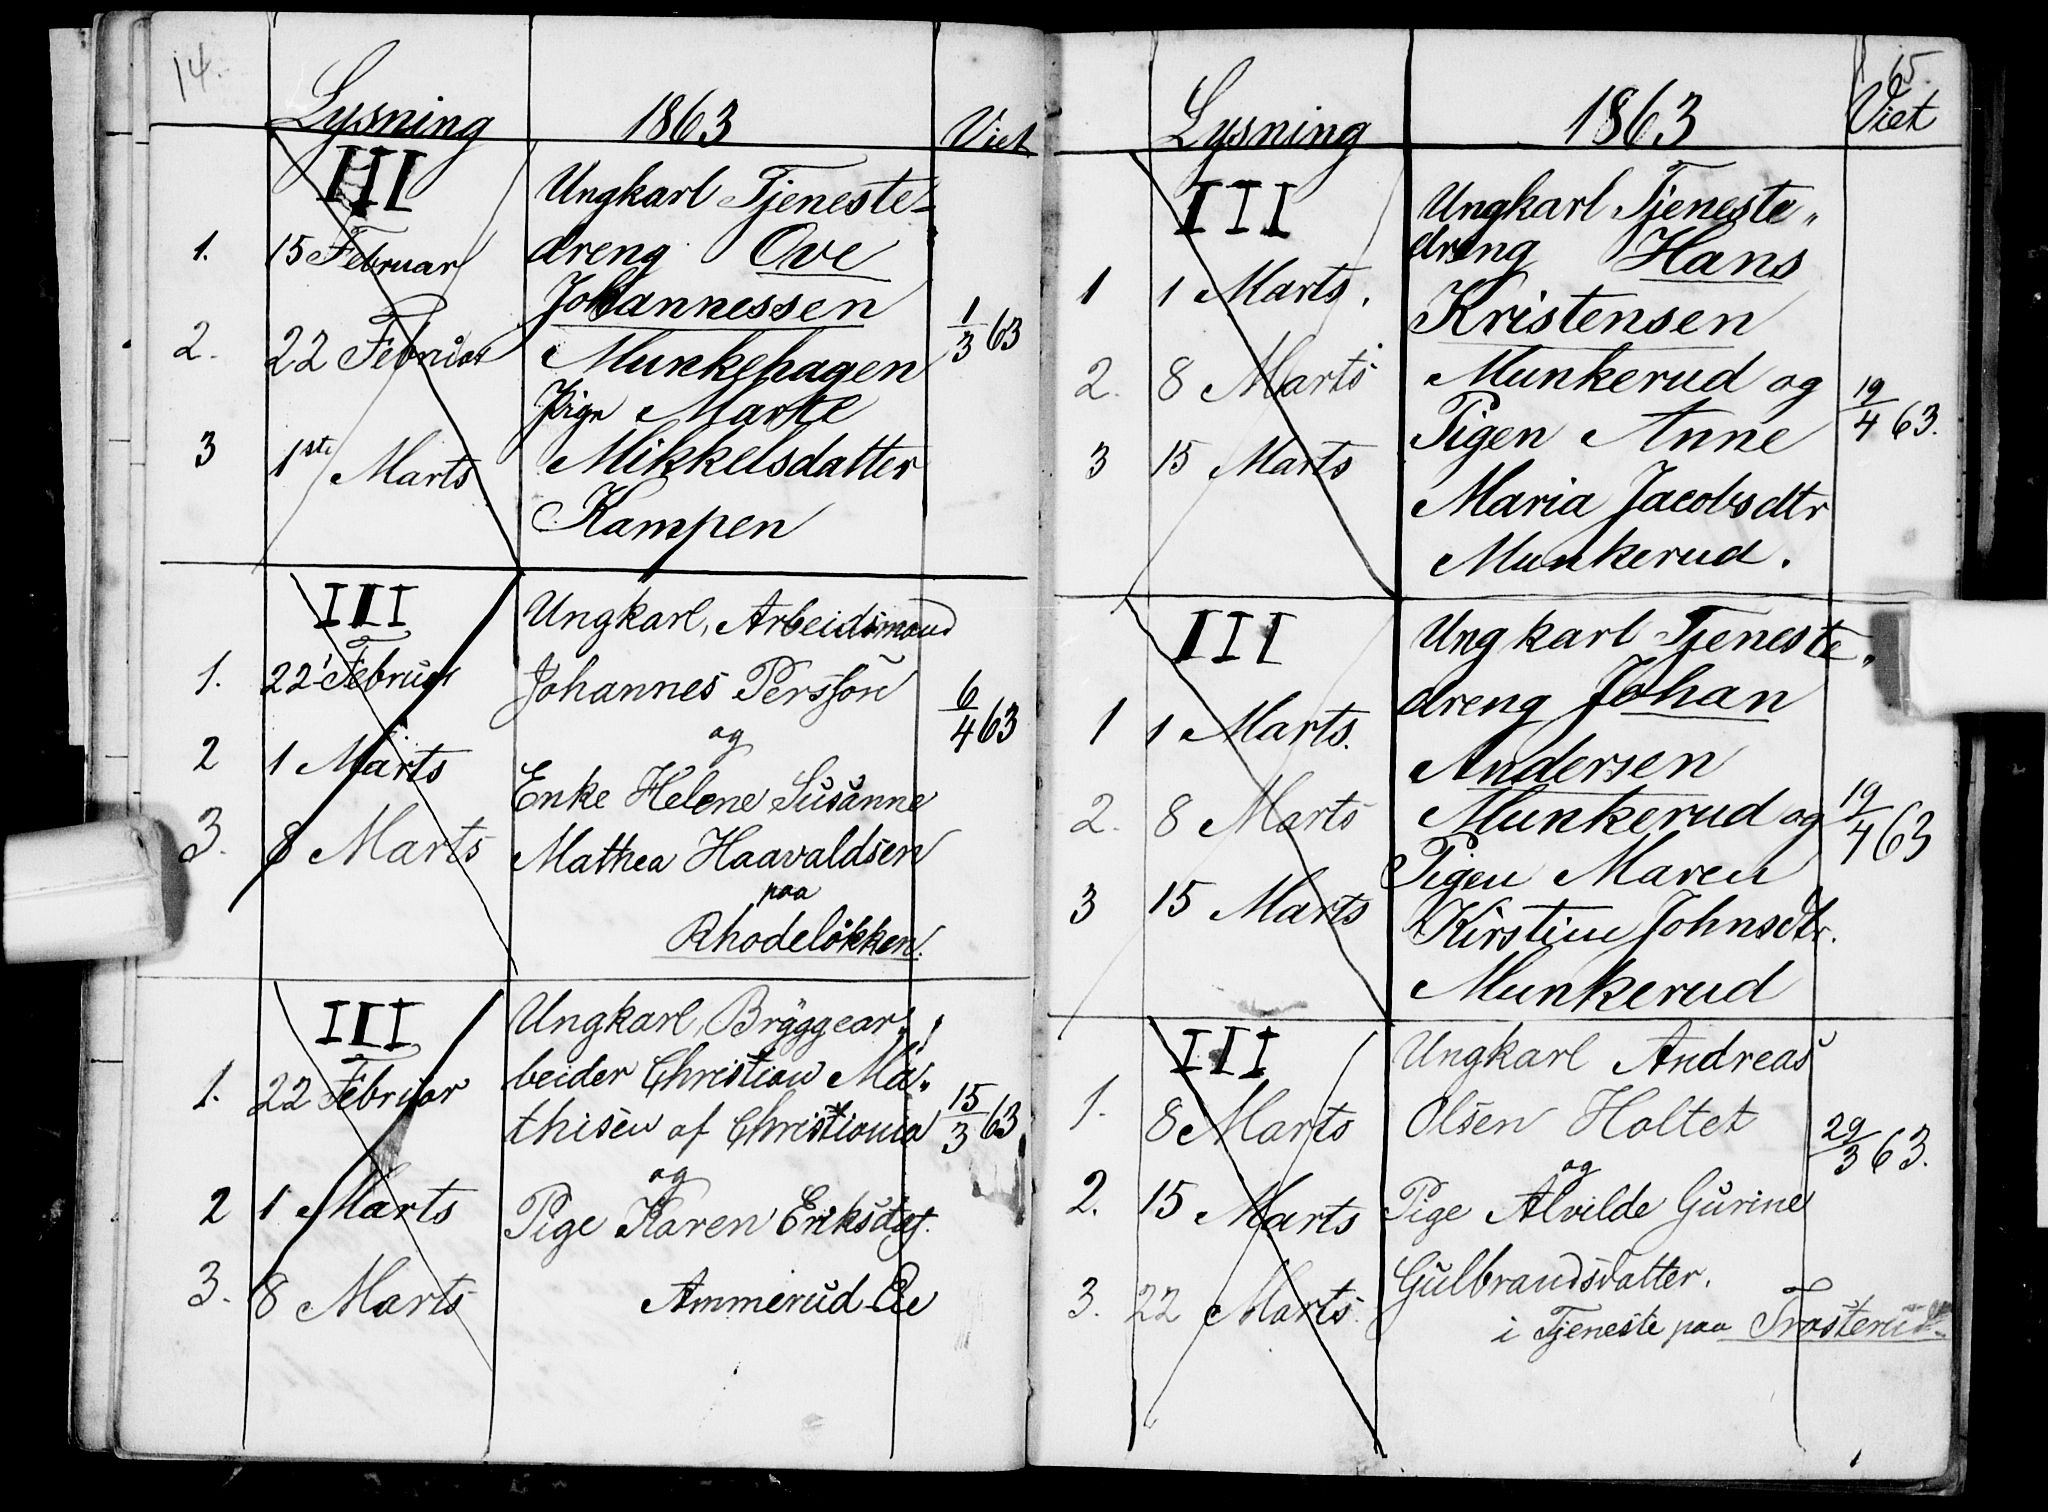 14.
Lysning 1863 Viet
III
1. 15 Februar
2. 22 Februar
3 1ste Marts
Ungkarl Tjeneste-
dreng Ove
Johannessen
Munkehagen
Pige Marte
Mikkelsdatter
Kampen
1/3 63
III
1. 22 Februar
2 1 Marts
3. 8 Marts
Ungkarl, Arbeidsmand
Johannes Persson
og
Enke Helene Susanne
Mathea Haavaldsen
paa
Rhodeløkken.
6/4 63
III
1. 22 Februar
2 1 Marts
3. 8 Marts
Ungkarl, Bryggear-
beider Christian Ma-
thisen af Christiania
og
Pige Karen Eriksdat.
Ammerud Eie
15/3 63
15.
Lysning 1863 Viet
III
1 1 Marts.
2. 8 Marts
3 15 Marts
Ungkarl Tjeneste-
dreng Hans
Kristensen
Munkerud og
Pigen Anne
Maria Jacobsdtr
Munkerud.
19/4 63.
III
1 1 Marts.
2. 8 Marts
3 15 Marts
Ungkarl Tjeneste-
dreng Johan
Andersen
Munkerud og
Pigen Maren
Kirstine Johnsdtr.
Munkerud
19/4 63
III
1. 8 Marts
2. 15 Marts
3. 22 Marts.
Ungkarl Andreas
Olsen Holtet
og
Pige Alvilde Gurine
Gulbrandsdatter.
i Tjeneste paa Trosterud.
29/3 63.